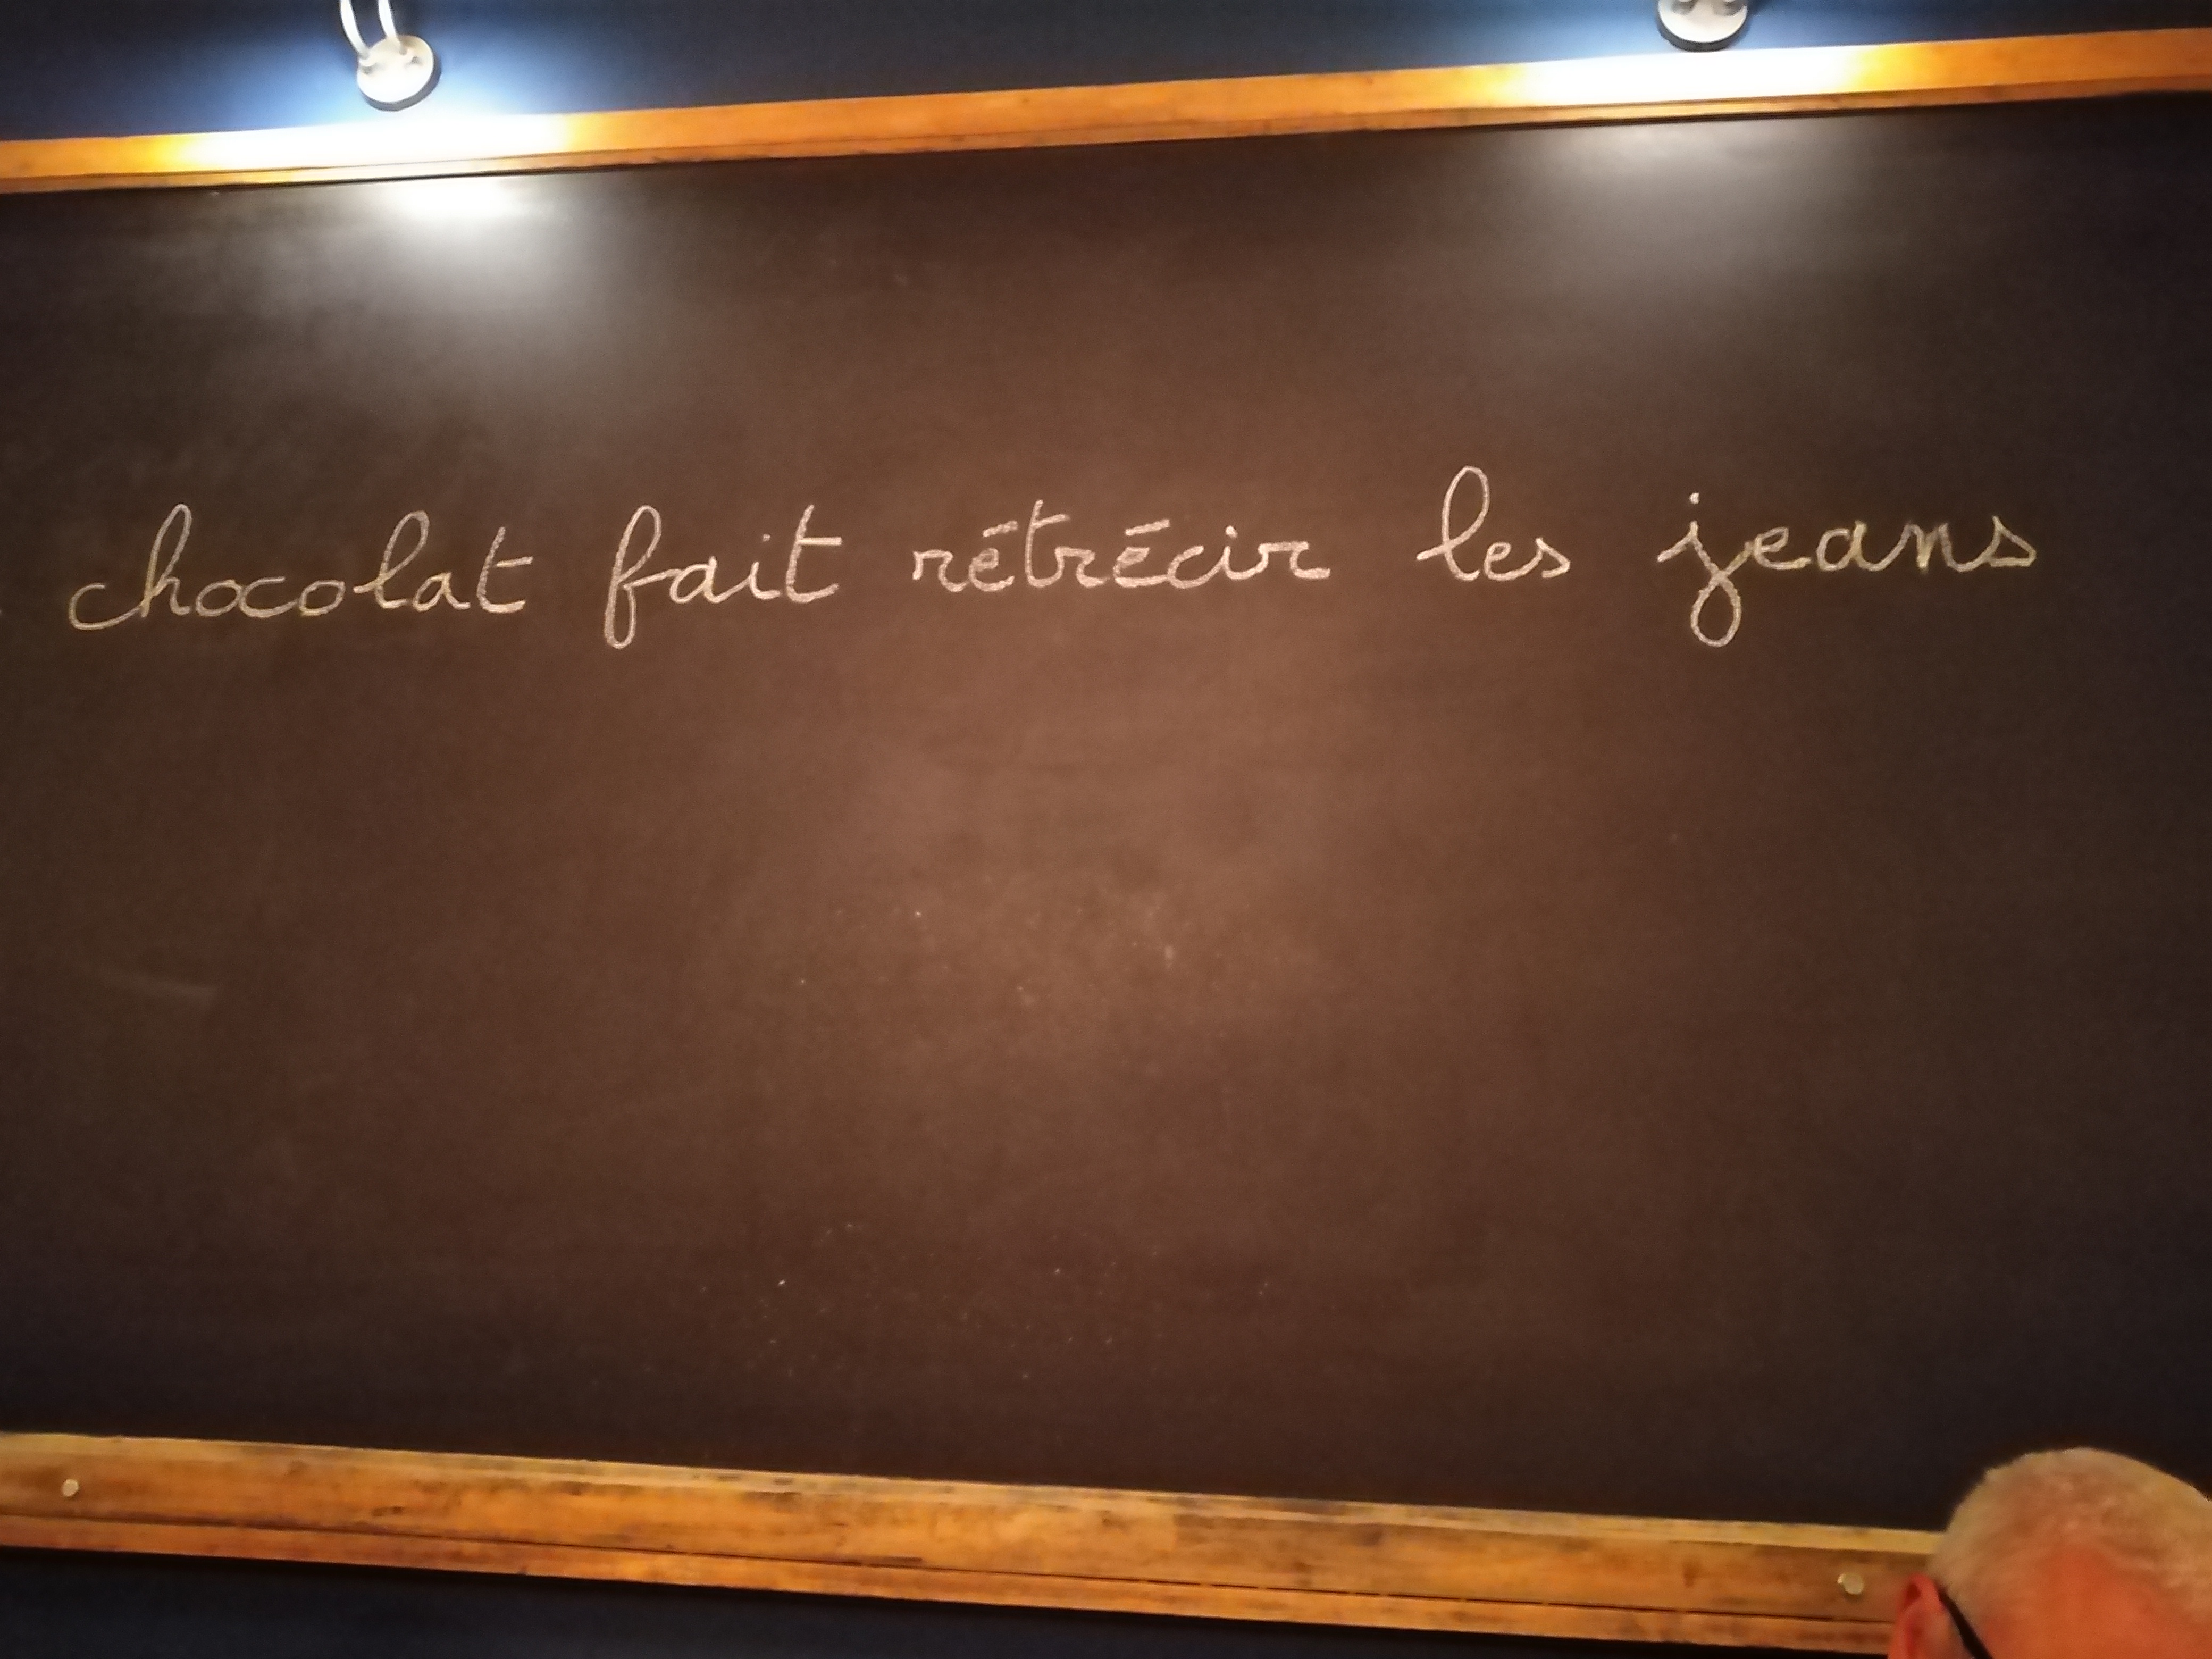 chocolat fait rétrécir les jeans